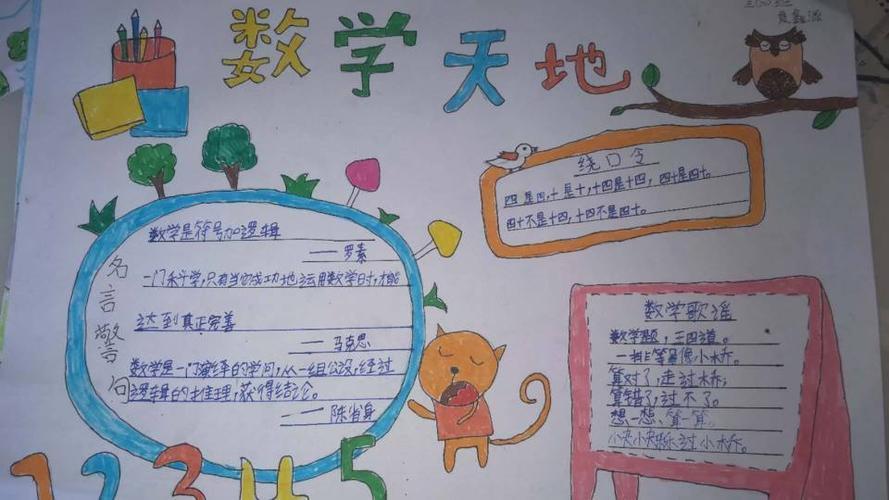 数学天地
绕口令
四是四,十是十,十四是十四,四十是四十。
四十不是十四,十四不是四十。
名言警句
数学是符号加逻辑
——罗素
一门科学,只有当它成功地运用数学时,才能
达到真正完善
——马克思
数学是一门演绎的学问,从一组公设,经过
逻辑的推理,获得结论。
——陈省身
数学歌谣
数学题,三四道。
一排等号像小桥。
算对了,走过桥;
算错了,过不了。
想一想,算一算,
小桥。
12345